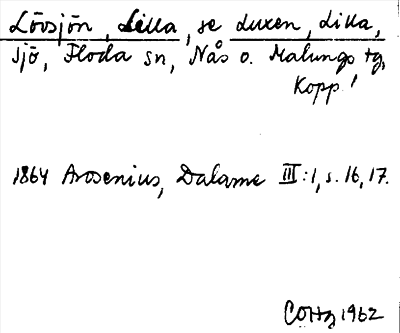 Lövsjön, Lilla, se Luxen, Lilla,
sjö, Floda sn, Nås o. Malungs tg,
Kopp!
1864 Arosenius, Dalarne III:1, s. 16, 17.
1962